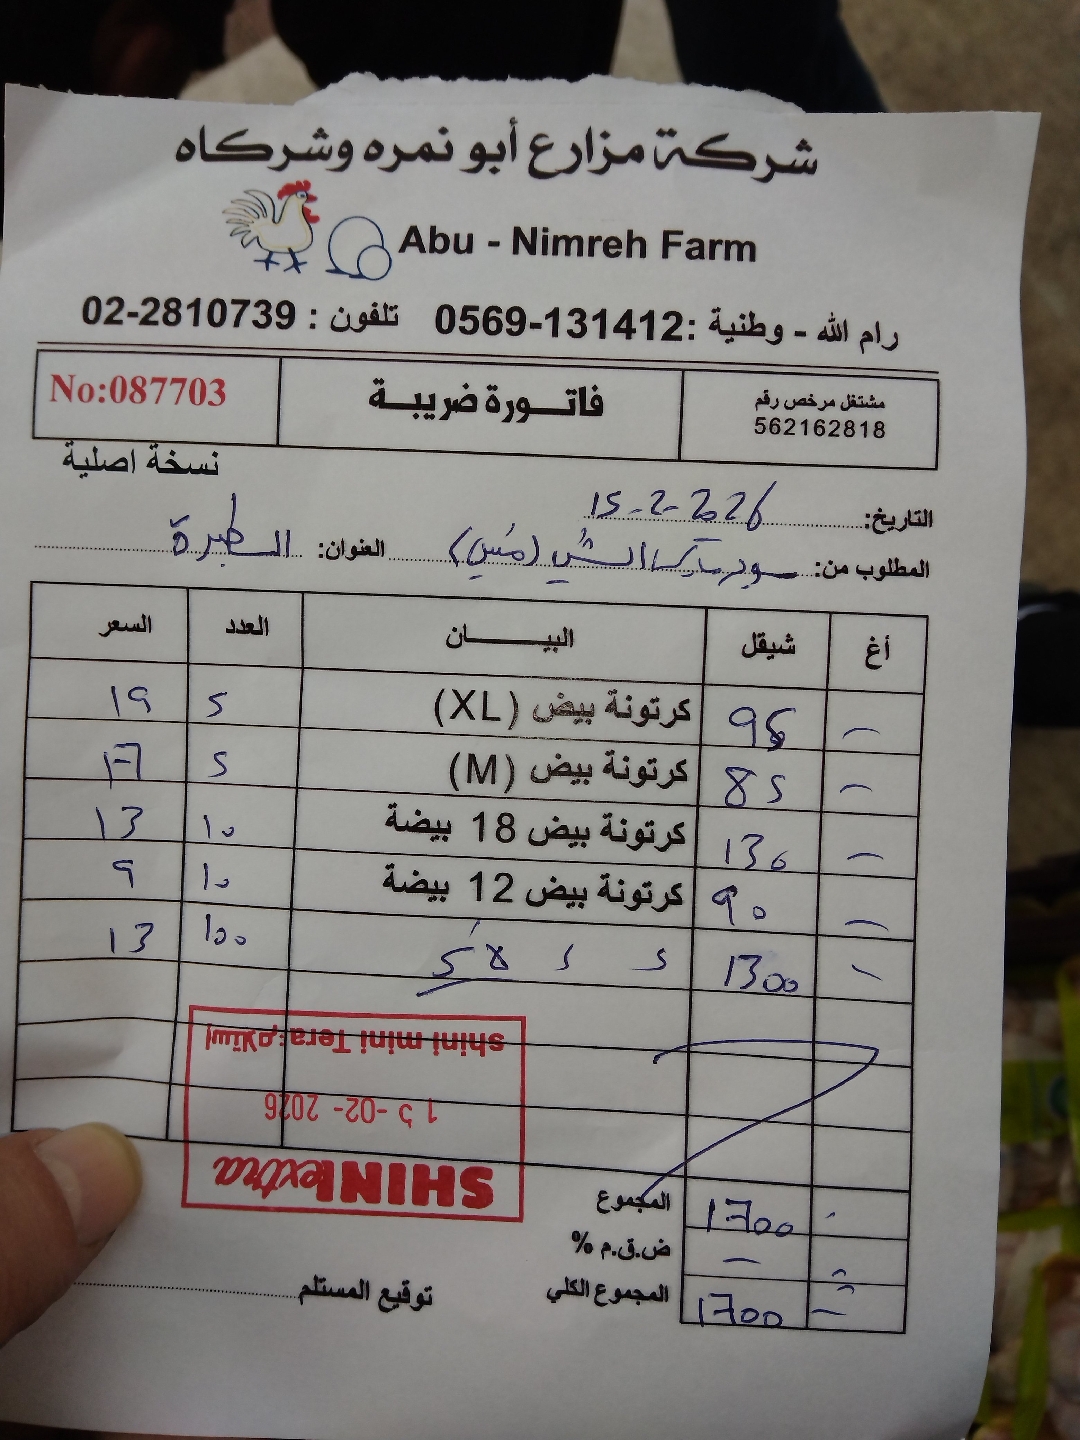 شركة مزارع أبو نمره وشركاه
Abu - Nimreh Farm
رام الله - وطنية :0569-131412 تلفون : 02-2810739
مشتغل مرخص رقم 562162818
فاتـــورة ضريبـة
No:087703
نسخة اصلية
التاريخ: 15-2-2026
المطلوب من: سوبر ماركت الشني العنوان: الطيرة
أغ شيقل البيـــــــان العدد السعر
- 95 كرتونة بيض (XL) 5 19
- 85 كرتونة بيض (M) 5 17
- 130 كرتونة بيض 18 بيضة 10 13
- 90 كرتونة بيض 12 بيضة 10 9
- 1300 100 13
shini mini Tera:إستلام
15-02-2026
SHINI extra
المجموع 1700
ض.ق.م % -
المجموع الكلي 1700 -
توقيع المستلم